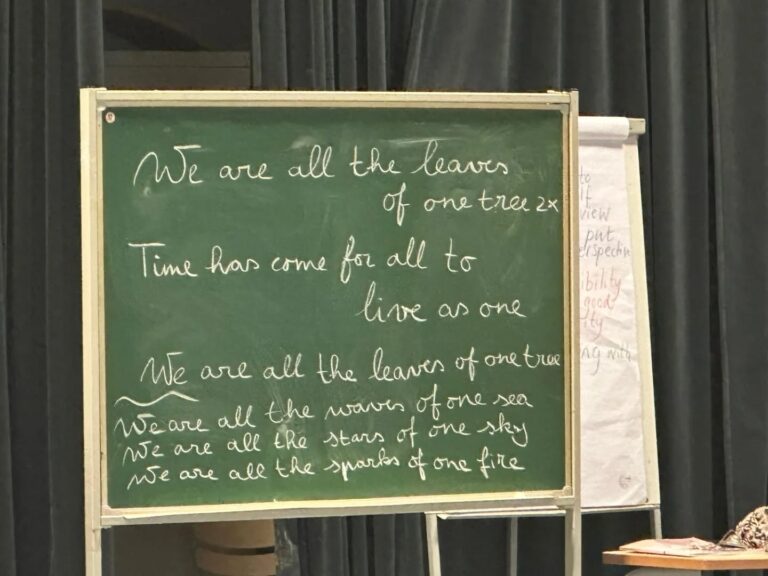 We are all the leaves
of one tree 2x
Time has come for all to
live as one
We are all the leaves of one tree
We are all the waves of one sea
We are all the stars of one sky
We are all the sparks of one fire
to
view
put
ibility
good
ity
ng with